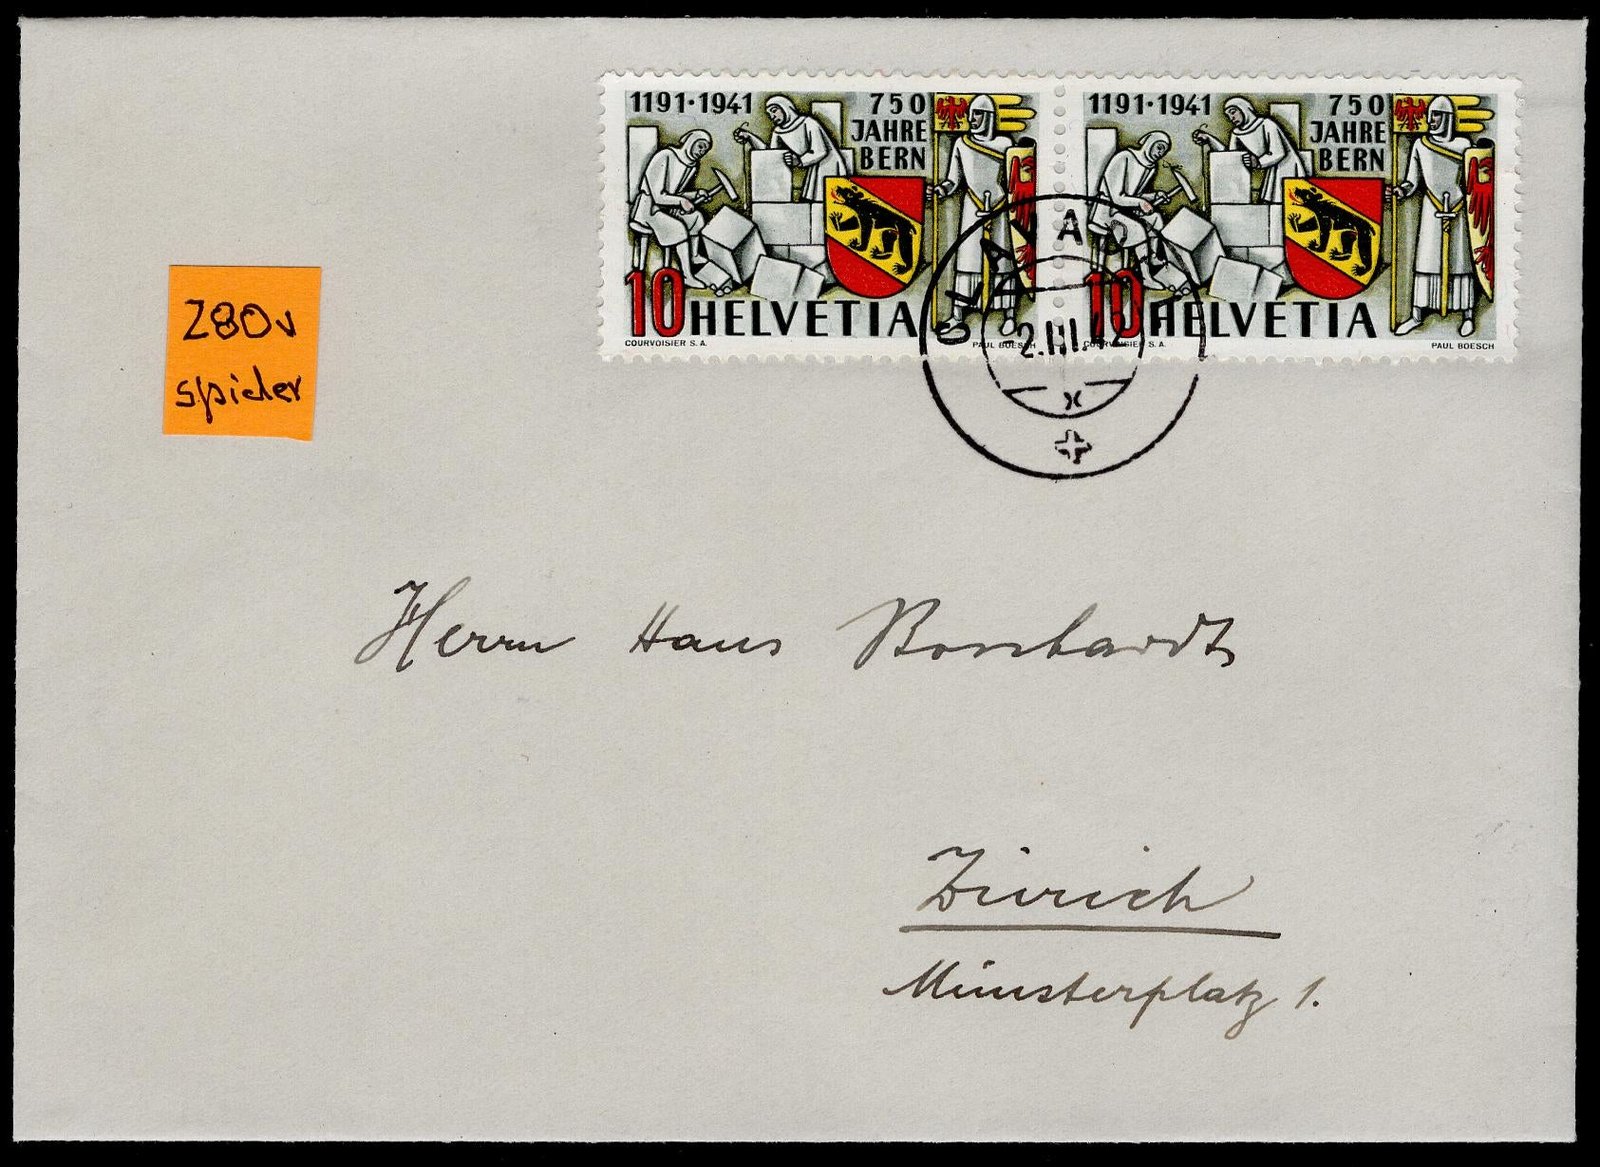 1191·1941 750
JAHRE
BERN
10 HELVETIA
COURVOISIER S.A. PAUL BOESCH
1191·1941 750
JAHRE
BERN
10 HELVETIA
S.A. PAUL BOESCH
Z80v
spider
Herrn Hans
Zürich
Münsterplatz 1.